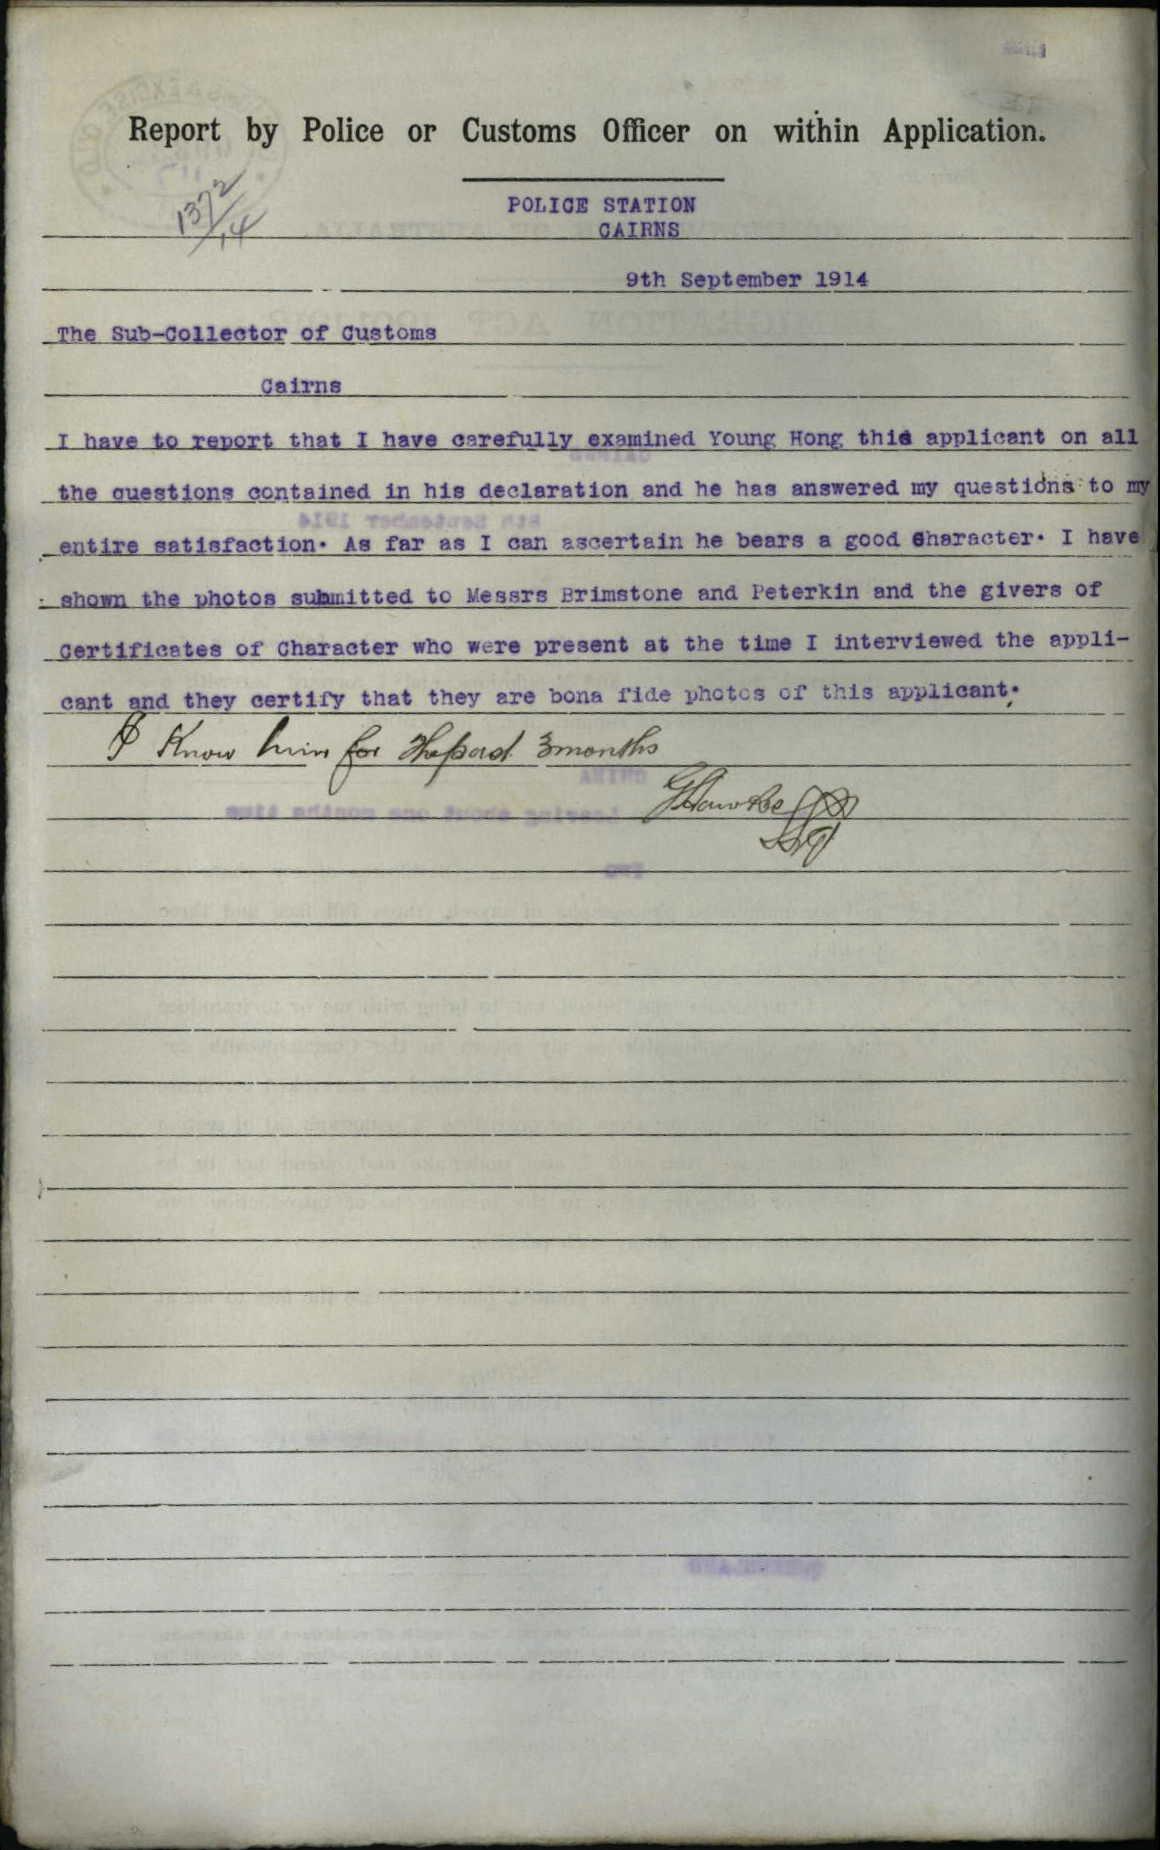 Report by Police or Customs Officer on within Application.
1372/14
POLICE STATION
CAIRNS
9th September 1914
The Sub-Collector of Customs
Cairns
I have to report that I have carefully examined Young Hong this applicant on all
the questions contained in his declaration and he has answered my questions to my
entire satisfaction. As far as I can ascertain he bears a good Character. I have
shown the photos submitted to Messrs Brimstone and Peterkin and the givers of
Certificates of Character who were present at the time I interviewed the appli-
cant and they certify that they are bona fide photos of this applicant.
I Know him for the past 3 months